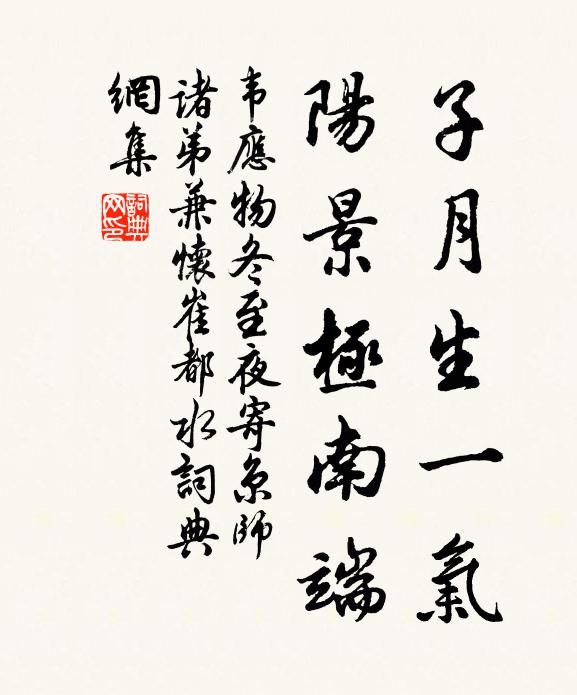 子月生一氣
陽景極南端
韦應物冬至夜寄京師
諸弟兼懷崔都水詞典
網集
詞典網印